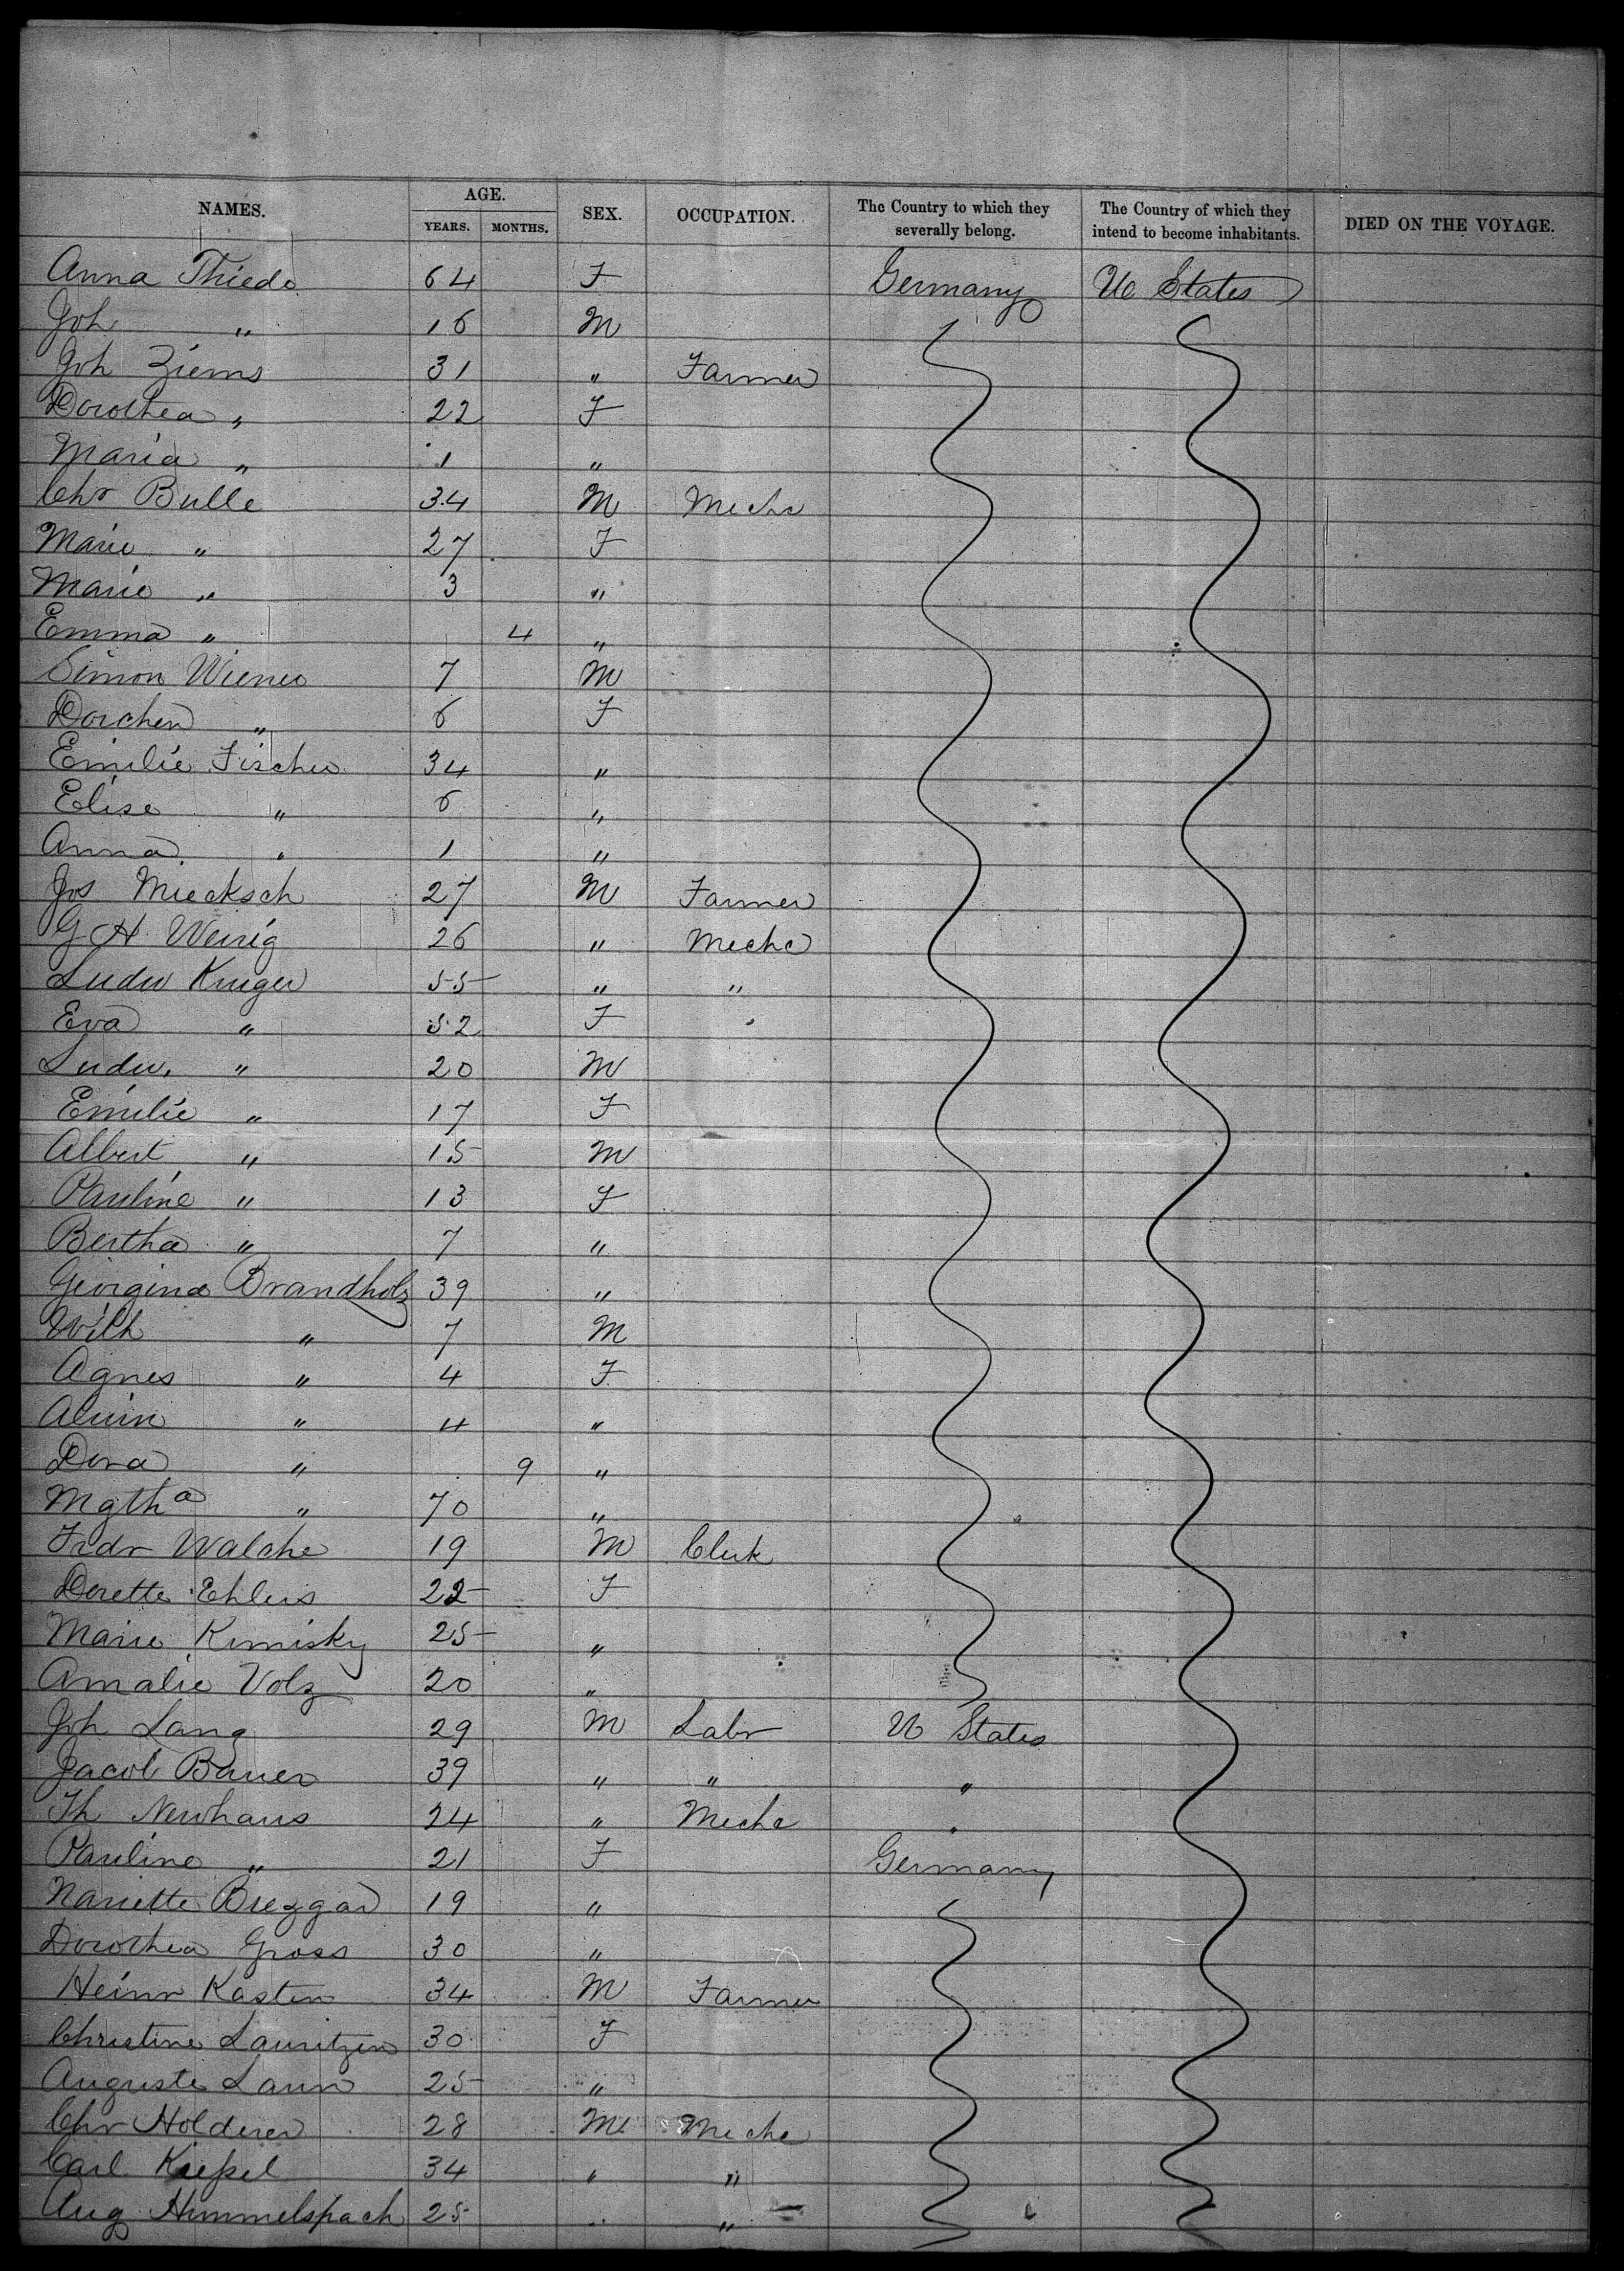 NAMES. AGE. YEARS. MONTHS. SEX. OCCUPATION. The Country to which they severally belong. The Country of which they intend to become inhabitants. DIED ON THE VOYAGE.
Anna Thiede 64 F Germany U States
Joh " 16 M
Joh Ziems 31 " Farmer
Dorothea " 22 F
Maria " 1 "
Chr Bulle 34 M Mechc
Marie " 27 F
Marie " 3 "
Emma " 4 "
Simon Wiener 7 M
Dorchen " 6 F
Emilie Fischer 34 "
Elise " 6 "
Anna " 1 "
Jos Miecksch 27 M Farmer
G H Weirig 26 " Mechc
Ludw Kruger 55 " "
Eva " 52 F
Ludw. " 20 M
Emilie " 17 F
Albert " 15 M
Pauline " 13 F
Bertha " 7 "
Georgina Brandholz 39 "
Wilh " 7 M
Agnes " 4 F
Alwin " 4 "
Dora " 9 "
Mgtha " 70 "
Frdr Walche 19 M Clerk
Dorette Ehlers 22 F
Marie Kimisky 25 "
Amalie Volz 20 "
Joh Lang 29 M Labr U States
Jacob Bauer 39 " " "
Th Newhaus 24 " Mechc "
Pauline " 21 F Germany
Nanette Brezgar 19 "
Dorothea Gross 30 "
Heinr Kasten 34 M Farmer
Christine Lauritzen 30 F
Auguste Laun 25 "
Chr Holderer 28 M Mechc
Carl Kiessel 34 " "
Aug Himmelspach 25 " "